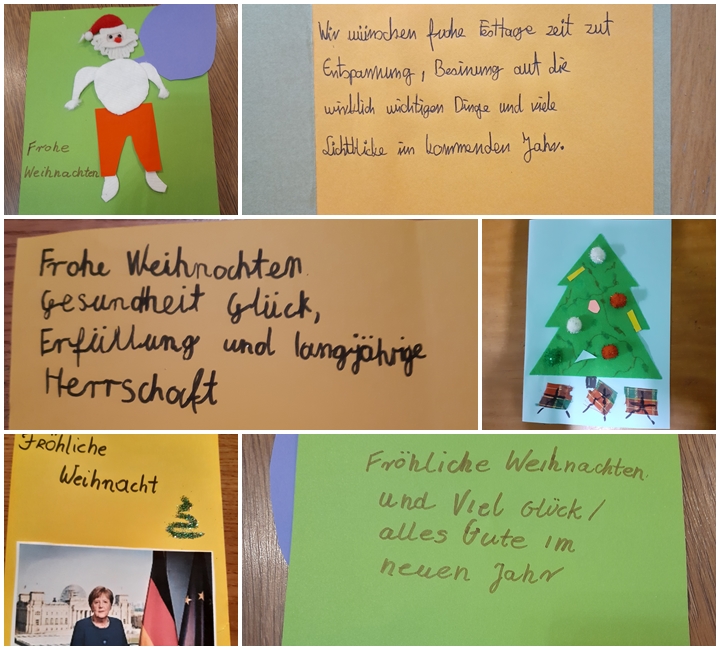 Frohe
Weihnachten
Wir wünschen frohe Festtage zeit zut
Entspannung, Besinung auf die
wirklich wichtigen Dinge und viele
Lichtblicke im kommenden Jahr.
Frohe Weihnachten.
Gesundheit Glück,
Erfüllung und langjährige
Herrschaft
Fröhliche
Weihnacht
Fröhliche Weihnachten.
und Viel Glück/
alles Gute im
neuen Jahr